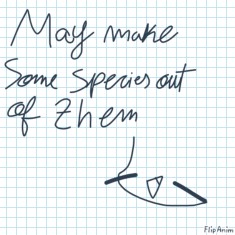 May make
Some Species out
of Zhem
FlipAnim